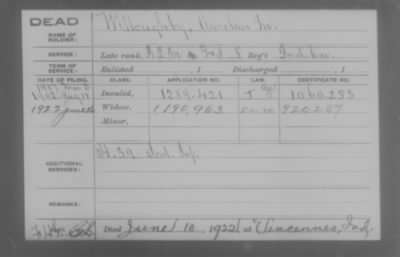 DEAD
NAME OF SOLDIER:
Willoughby, Aurelius W.
SERVICE:
Late rank, Reg't Ind. Cav.
TERM OF SERVICE:
Enlisted , 1 Discharged , 1
DATE OF FILING. CLASS. APPLICATION NO. LAW. CERTIFICATE NO.
Invalid, 1289.421 1060.253
1922 June Widow, 1,190,963 920267
Minor,
ADDITIONAL SERVICES:
H. 59. Ind. Inf.
REMARKS:
Died June 10, 1922, at Vincennes, Ind.